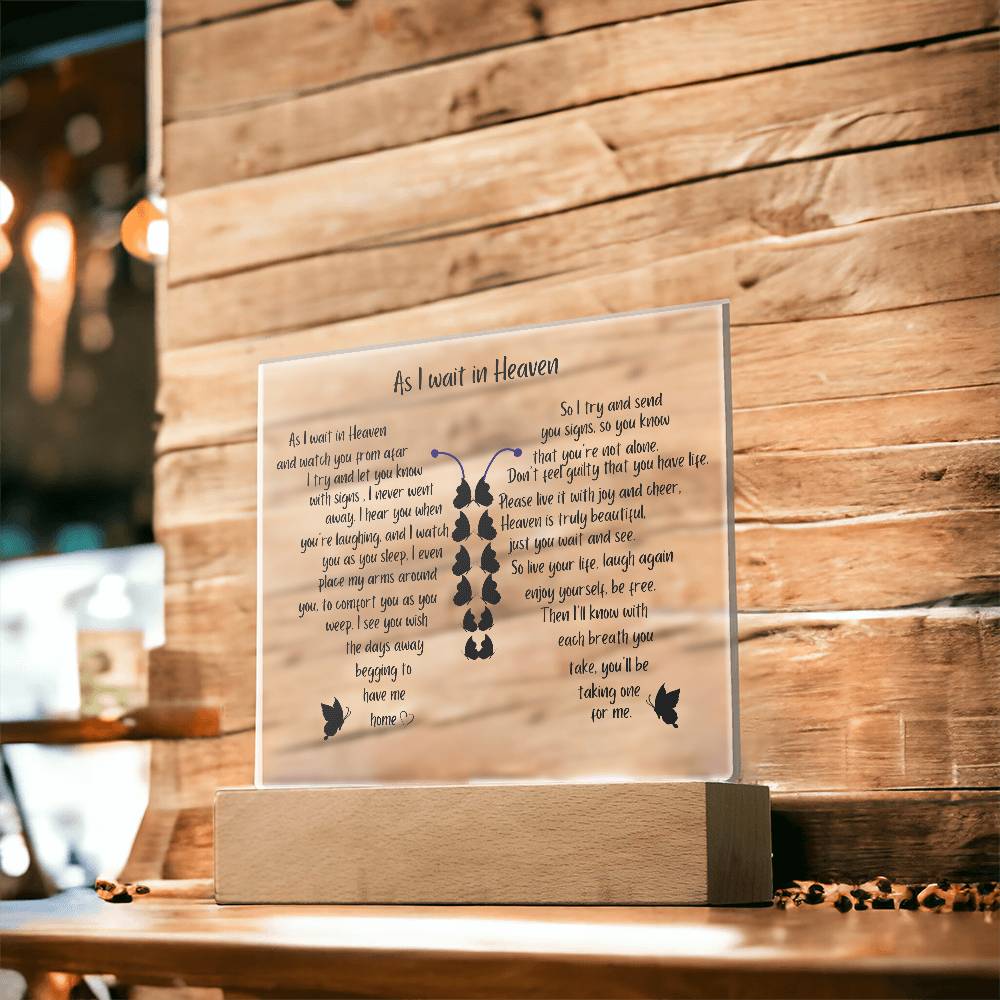 As I wait in Heaven
As I wait in Heaven
and watch you from afar
I try and let you know
with signs , I never went
away. I hear you when
you're laughing, and I watch
you as you sleep, I even
place my arms around
you, to comfort you as you
weep. I see you wish
the days away
begging to
have me
home
So I try and send
you signs, so you know
that you're not alone.
Don't feel guilty that you have life.
Please live it with joy and cheer,
Heaven is truly beautiful,
just you wait and see.
So live your life, laugh again
enjoy yourself, be free.
Then I'll know with
each breath you
take, you'll be
taking one
for me.